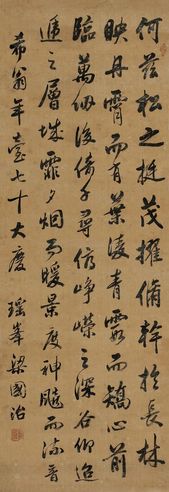 何茲松之挺茂擢脩幹於長林
映丹霄而有葉淩青雲而矯心前
臨萬仞後倚千尋信崢嶸之深谷仰迢
遞之層城霏夕烟而曖景度神飈而流音
希翁年臺七十大慶 瑤峯梁國治